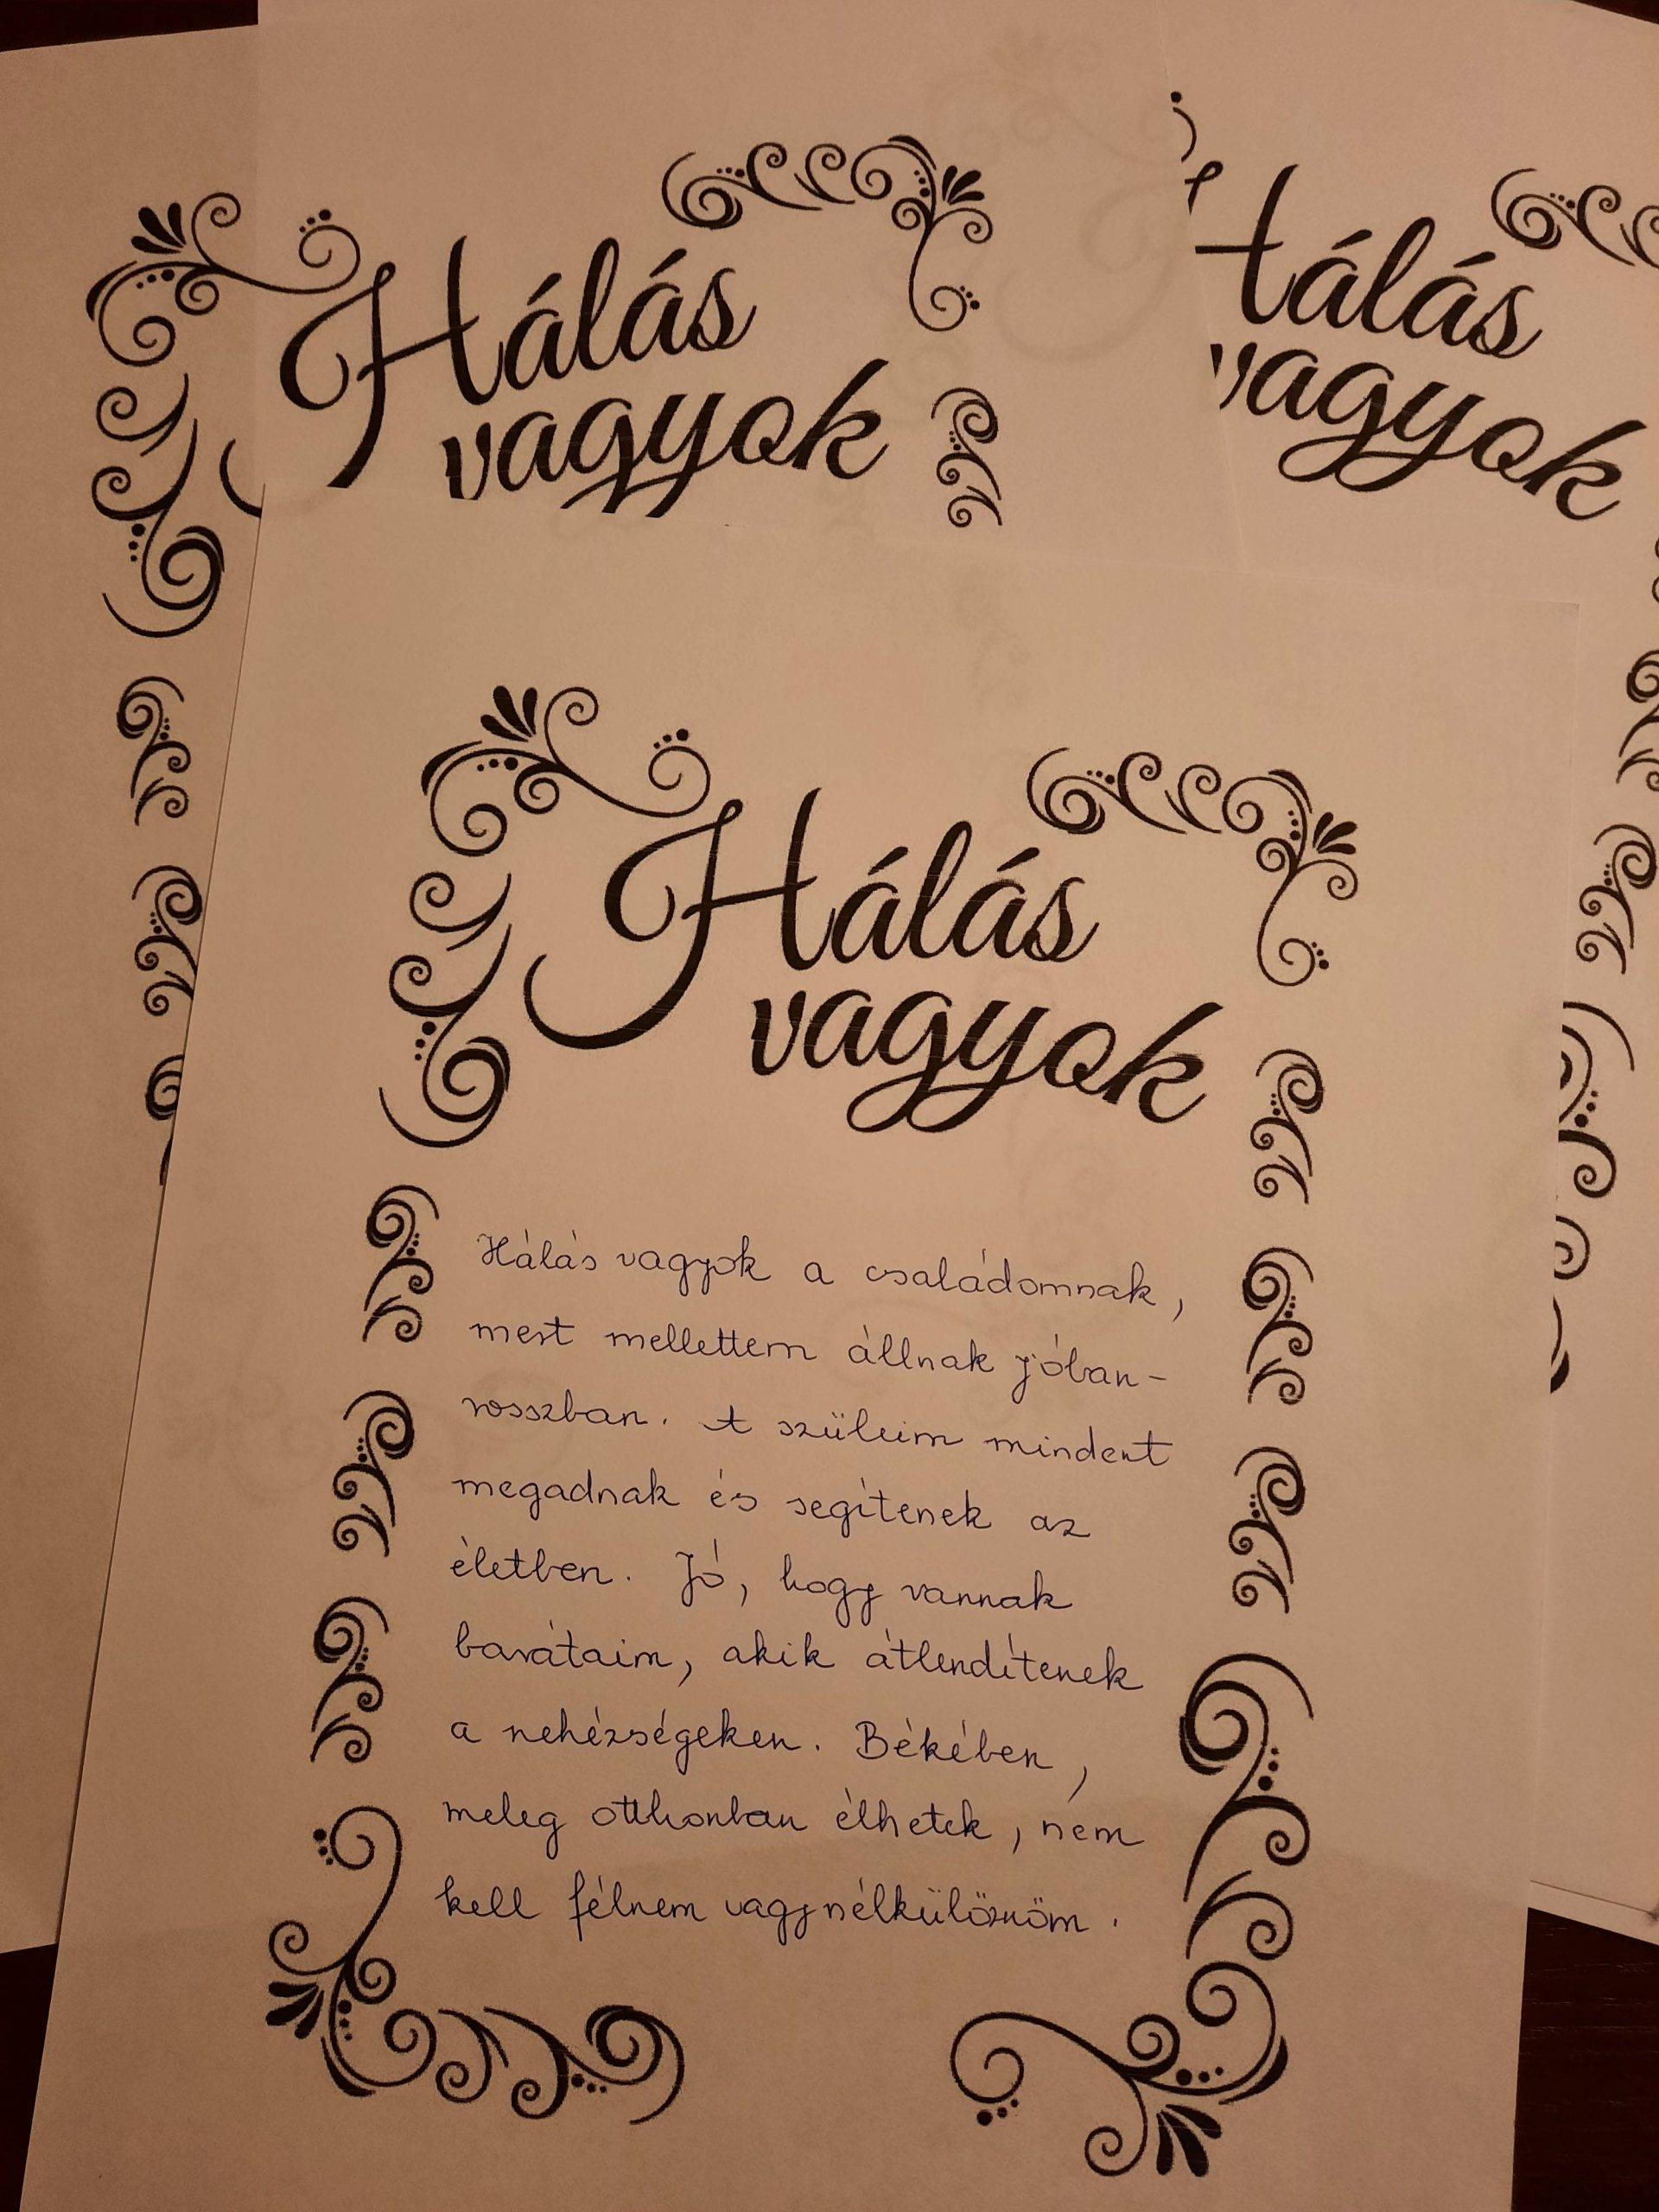 Hálás
vagyok
Hálás
vagyok
Hálás
vagyok
Hálás vagyok a családomnak,
mert mellettem állnak jóban-
rosszban. A szüleim mindent
megadnak és segítenek az
életben. Jó, hogy vannak
barátaim, akik átlendítenek
a nehézségeken. Békében,
meleg otthonban élhetek, nem
kell félnem vagy nélkülöznöm.